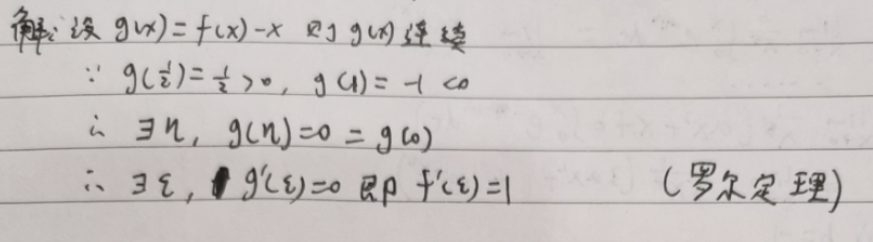 解: 设 g(x)=f(x)-x 则 g(x) 连续
∵ g(1/2)=1/2>0, g(1)=-1<0
∴ ∃η, g(η)=0=g(0)
∴ ∃ξ, g'(ξ)=0 即 f'(ξ)=1 (罗尔定理)